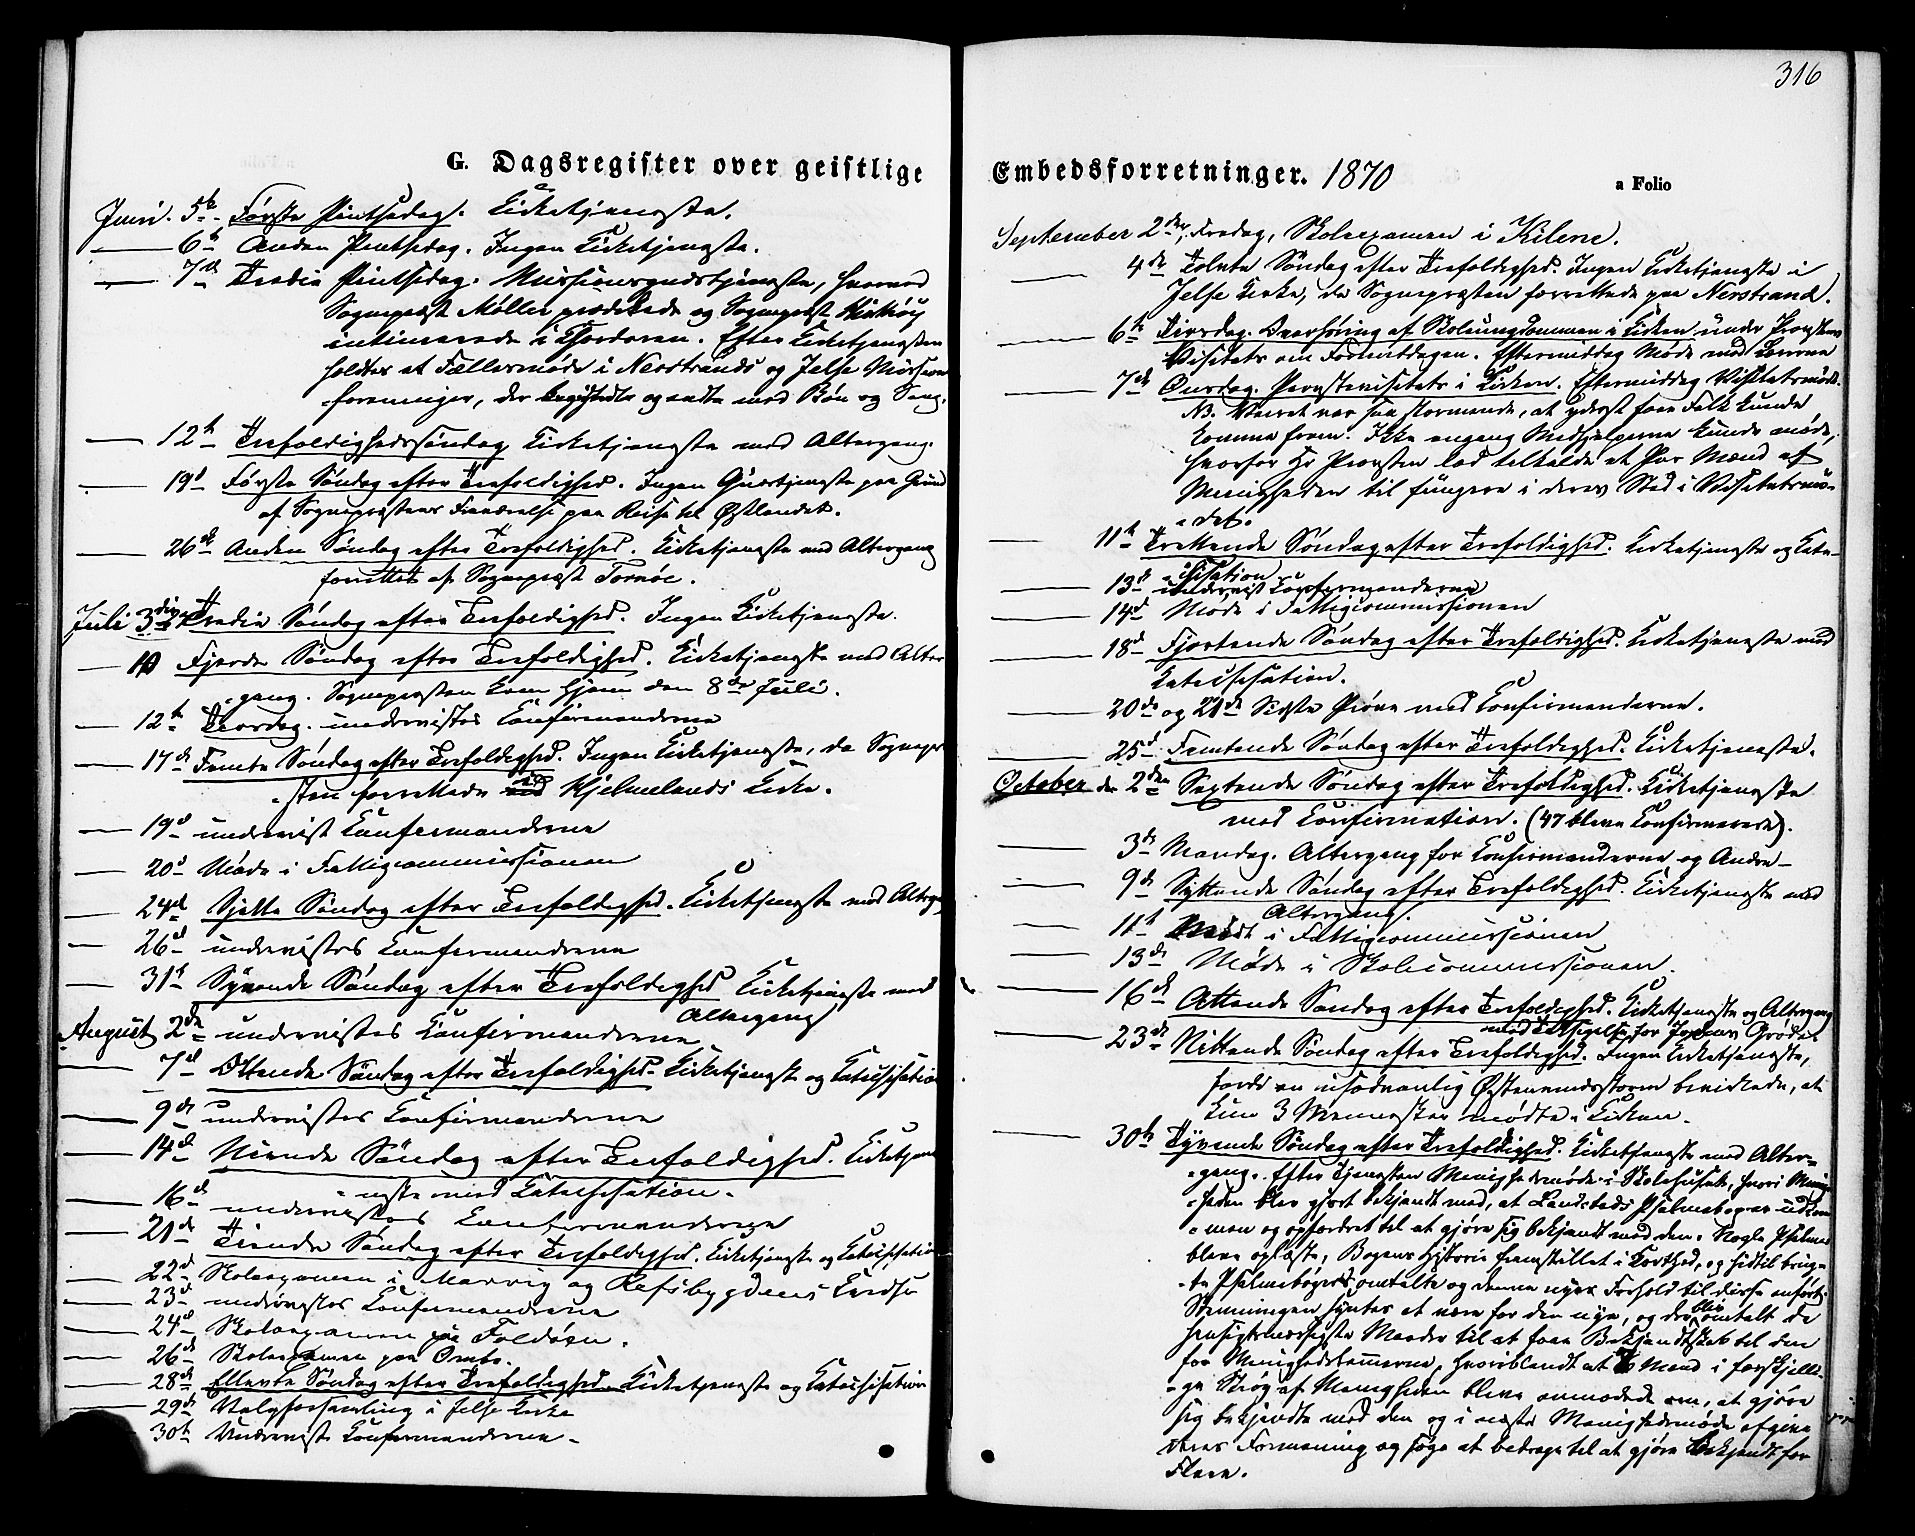 316
G. Dagsregister over geistlige
Juni. 5te Første Pintsedag. Kirketjeneste.
6te Anden Pintsedag. Ingen Kirketjeneste.
7de Tredie Pintsedag. Missionsgudstjeneste, hvorved
Sognepræst Møller prædikede og Sognepræst
intimerede i Chordøren. Efter Kirketjenesten
holdtes et Fællesmøde i Nerstrands og Jelse Missions
foreninger, der begyndte og endte med Bøn og Sang.
12te Trefoldighedssøndag Kirketjeneste med Altergang.
19de Første Søndag efter Trefoldighed. Ingen Gudstjeneste paa Grund
af Sognepræstens Fraværelse paa Reise til Østlandet.
26de Anden Søndag efter Trefoldighed. Kirketjeneste med Altergang
forrettet af Sognepræst Tornøe.
Juli 3die Tredie Søndag efter Trefoldighed. Ingen Kirketjeneste.
10 Fjerde Søndag efter Trefoldighed. Kirketjeneste med Alter
gang. Sognepræsten kom hjem den 8de Juli.
12te Tirsdag. undervistes Confirmanderne
17de Femte Søndag efter Trefoldighed. Ingen Kirketjeneste, da Sognepræ
sten forrettede ved Hjelmelands Kirke.
19de undervist Confirmanderne
20de Møde i Fattigcommissionen
24de Sjette Søndag efter Trefoldighed. Kirketjeneste med Alterga
26de undervistes Confirmanderne
31te Syvende Søndag efter Trefoldighed Kirketjeneste med
Altergang
August 2den undervistes Confirmanderne
7de Ottende Søndag efter Trefoldighed. Kirketjeneste og Catechisation
9de undervistes Confirmanderne
14de Niende Søndag efter Trefoldighed. Kirketjene
ste med Catechisation.
16de undervistes Confirmanderne
21de Tiende Søndag efter Trefoldighed. Kirketjeneste og Catechisation
22de Skoleexamen i Marvig og Refsbygdens Kredse
23de undervistes Confirmanderne
24de Skoleexamen paa Foldøen.
26de Skoleexamen paa Ombo.
28de Ellevte Søndag efter Trefoldighed. Kirketjeneste og Catechisation
29de Valgforsamling i Jelse Kirke
30te Undervist Confirmanderne
Embedsforretninger. 1870
a Folio
September 2den, Fredag, Skoleexamen i Kilene.
4de Tolvte Søndag efter Trefoldighed. Ingen Kirketjeneste i
Jelse Kirke, da Sognepræsten forrettede paa Nerstrand.
6te Tirsdag. Overhøring af Skoleungdommen i Kirken under Provstens
Visitats om Formiddagen. Eftermiddag Møde med Lærerne
7de Onsdag. Provstevisitats i Kirken. Eftermiddag Visitatsmøde.
NB. Veiret var saa stormende, at yderst faae Folk kunde
komme frem. Ikke engang Medhjelperne kunde møde,
hvorfor Hr Provsten lod tilkalde et Par Mænd af
Menigheden til fungere i deres Sted i Visitatsmø-
det.
11te Trettende Søndag efter Trefoldighed. Kirketjeneste og Cate-
chisation
13de undervist Confirmanderne
14de Møde i Fattigcommissionen
18de Fjortende Søndag efter Trefoldighed. Kirketjeneste med
Catechisation.
20de og 21de Sidste Prøve med Confirmanderne.
25de Femtende Søndag efter Trefoldighed. Kirketjeneste.
October den 2den Sextende Søndag efter Trefoldighed. Kirketjeneste
med Confirmation. (47 bleve Confirmerede).
3die Mandag. Altergang for Confirmanderne og Andre
9de Syttende Søndag efter Trefoldighed. Kirketjeneste med
Altergang.
11te Mødt i Fattigcommissionen
13de Møde i Skolecommissionen.
16de Attende Søndag efter Trefoldighed. Kirketjeneste og Altergang
med Taksigelse for Jordens Grøde
23de Nittende Søndag efter Trefoldighed. Ingen Kirketjeneste,
fordi en usædvanlig Østenvindsstorm bevirkede, at
kun 3 Mennesker mødte i Kirken.
30te Tyvende Søndag efter Trefoldighed. Kirketjeneste med Alter-
gang. Efter Tjenesten Menighedsmøde i Skolehuset, hvori Menig
heden blev gjort bekjendt med, at Landstads Psalmebog var udkom
men og opfordret til at gjøre sig bekjendt med den. Nogle Psalmer
bleve oplæste, Bogens Historie fremstillet i Korthed, og hidtil brug-
te Psalmebøger omtalte og denne nyes Forhold til disse anført.
Stemningen syntes at være for den nye, og der blev omtalt de
hensigtsmæssigste Maader til at faae Bekjendtskab til den
for Menighedslemmerne, hvoriblandt at Mænd i forskjelli
ge Strøg af Menigheden bleve anmodede om, at gjøre
sig bekjendte med den og i næste Menighedsmøde afgive
deres Formening og søge at bidrage til at gjøre Bekjendt for
Flere.